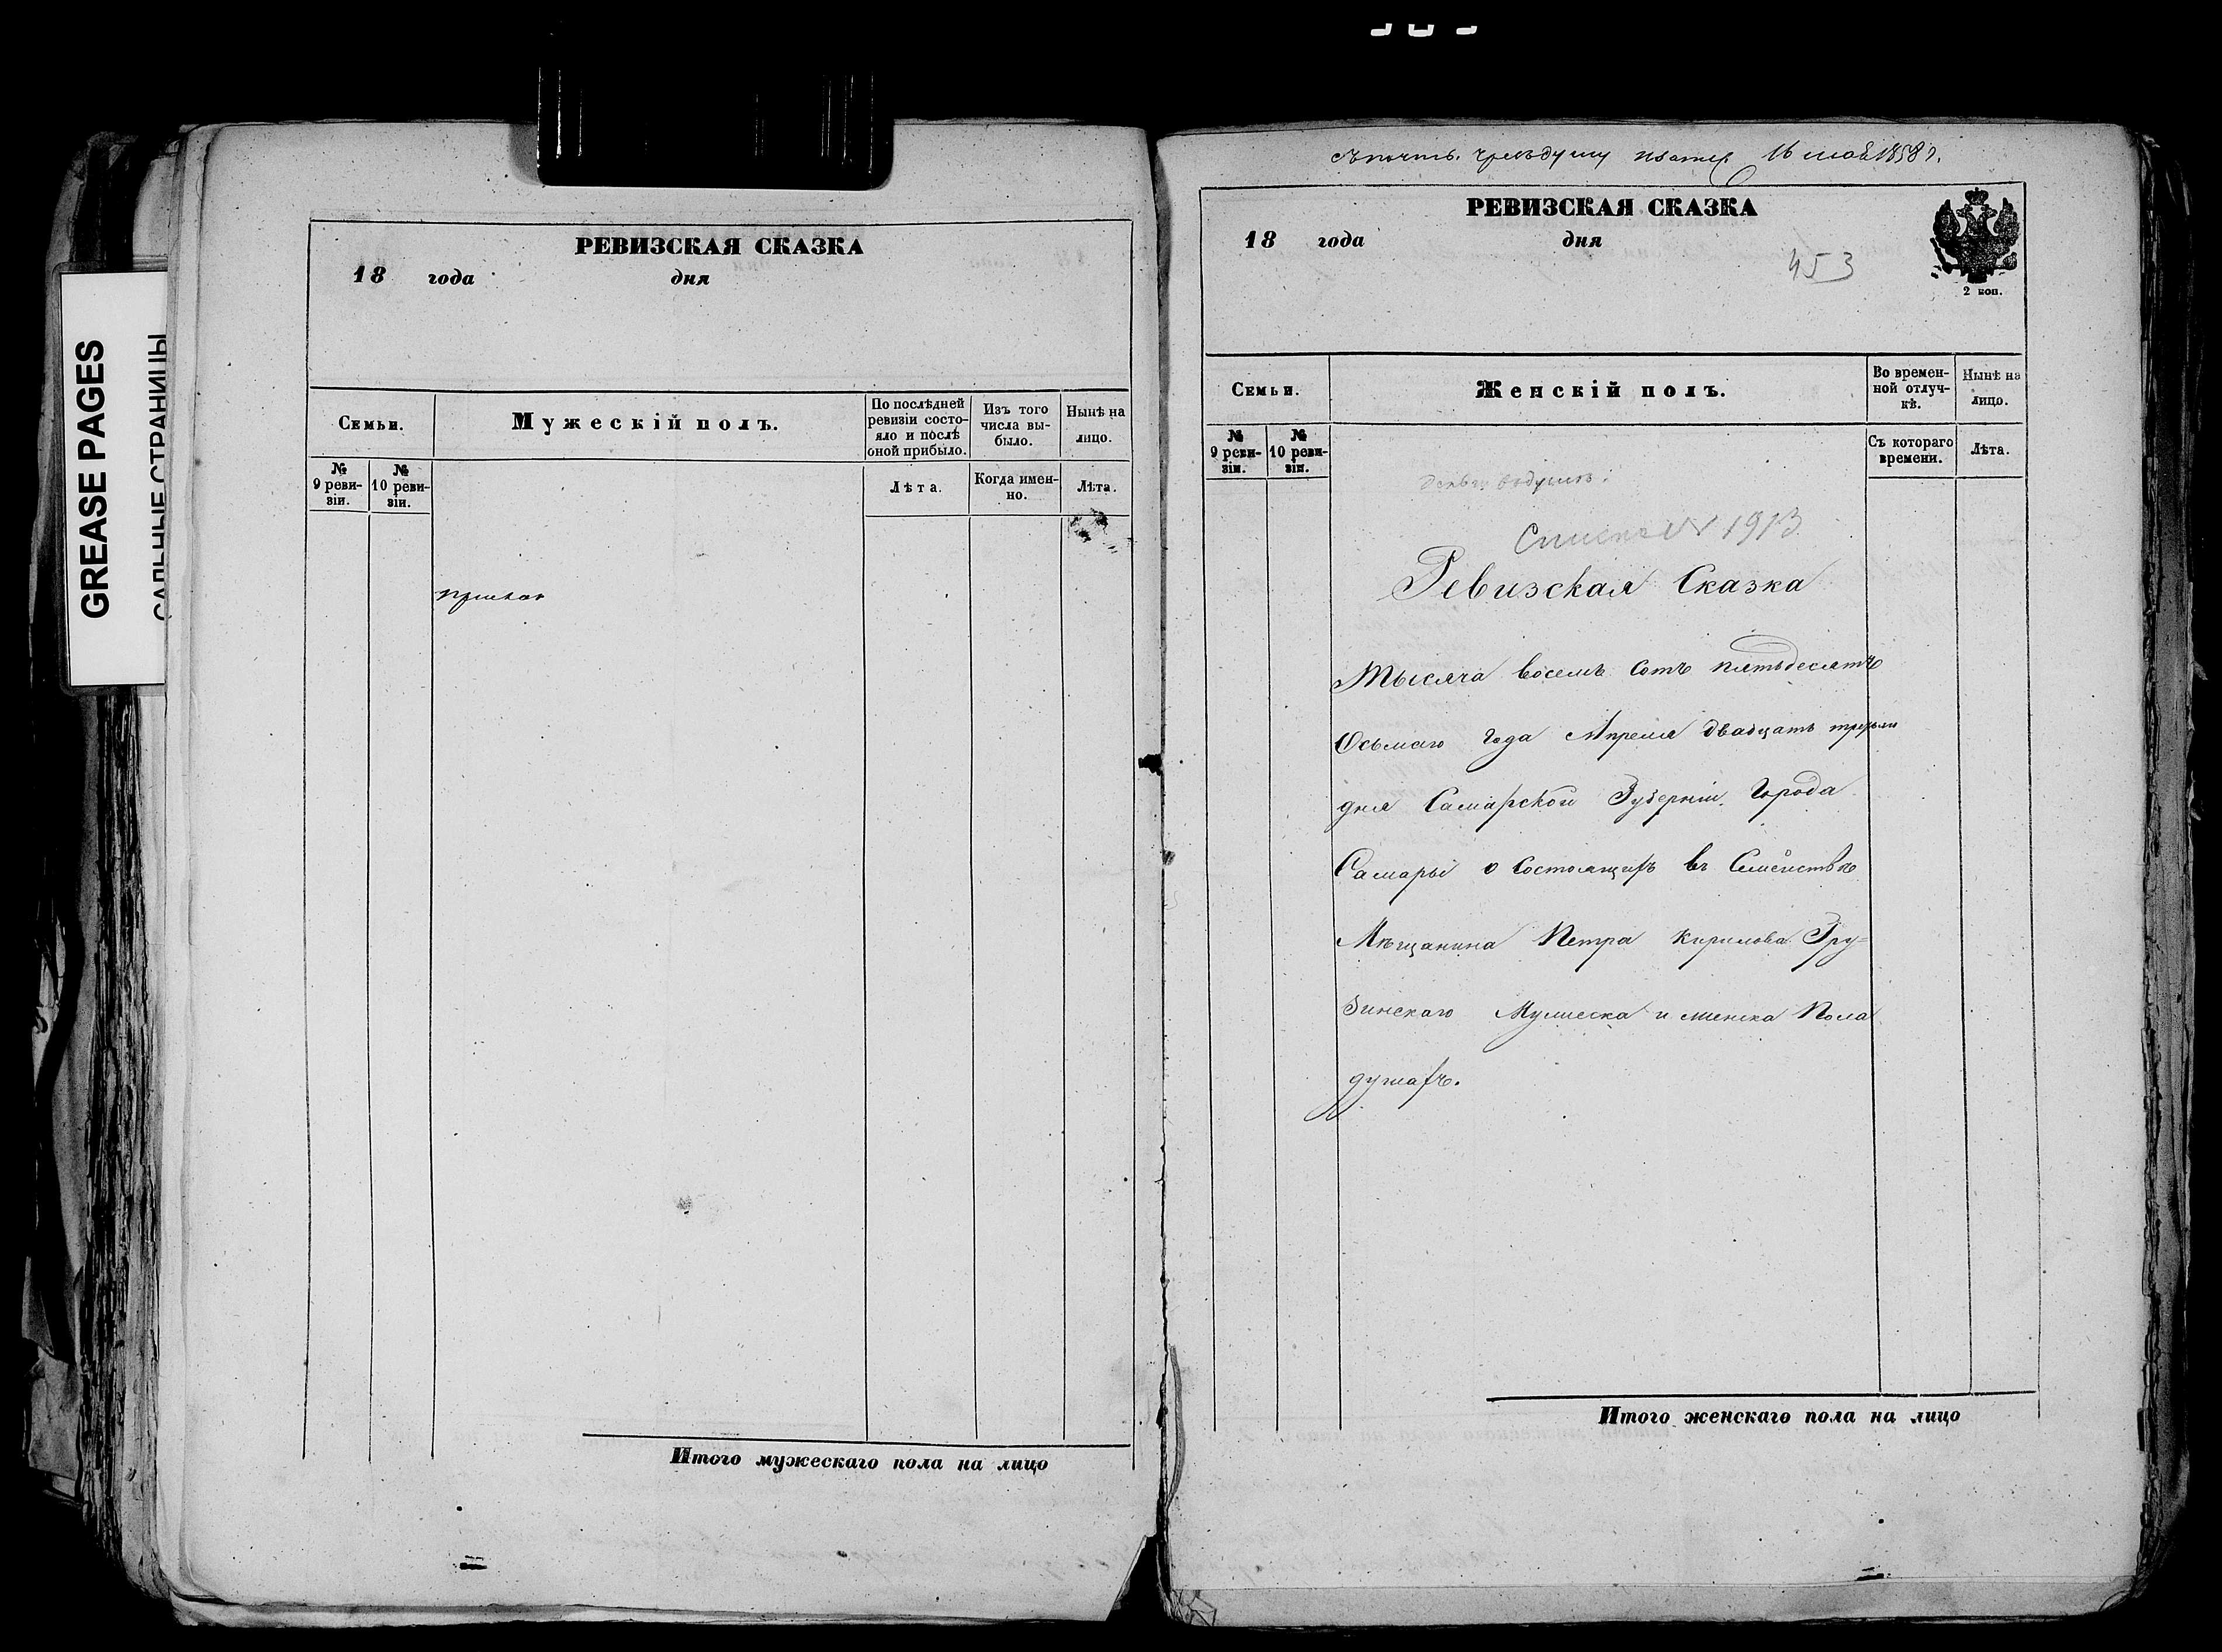 GREASE PAGES
САЛЬНЫЕ СТРАНИЦЫ
РЕВИЗСКАЯ СКАЗКА
18 года дня
Семьи.
Мужескій полъ.
По послѣдней ревизіи состояло и послѣ оной прибыло.
Изъ того числа выбыло.
Нынѣ на лицо.
№ 9 ревизіи.
№ 10 ревизіи.
Лѣта.
Когда именно.
Лѣта.
Итого мужескаго пола на лицо
16 маія 1858 г.
РЕВИЗСКАЯ СКАЗКА
18 года дня
453
2 коп.
Семьи.
Женскій полъ.
Во временной отлучкѣ.
Нынѣ на лицо.
№ 9 ревизіи.
№ 10 ревизіи.
Съ котораго времени.
Лѣта.
1913
Ревизская Сказка
Тысяча восемь сотъ пятьдесятъ
Осьмаго года Апреля двадцать третьяго
дня Самарской Губерніи Города
Самары о состоящихъ въ Семействѣ
Мѣщанина Петра Кирилова Гру=
зинскаго Мужеска и женска Пола
душахъ.
Итого женскаго пола на лицо